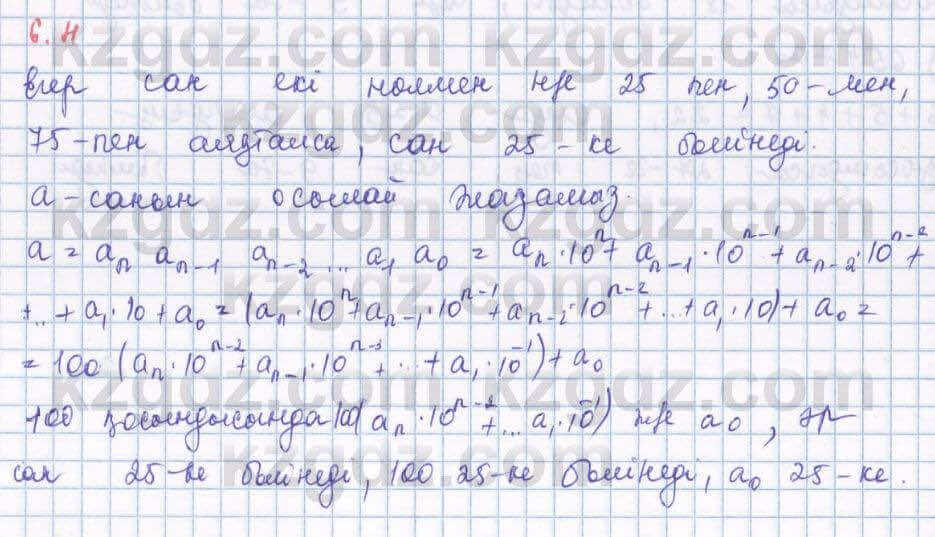 6.11
егер сан екі нөлмен нөл 25 пен, 50-мен,
75-пен аяқталса, сан 25-ке бөлінеді.
a-санын осылай жазамыз.
a = aₙ aₙ₋₁ aₙ₋₂ ... a₁ a₀ = aₙ·10ⁿ + aₙ₋₁·10ⁿ⁻¹ + aₙ₋₂·10ⁿ⁻² +
+...+ a₁·10 + a₀ = (aₙ·10ⁿ + aₙ₋₁·10ⁿ⁻¹ + aₙ₋₂·10ⁿ⁻² + ...+ a₁·10) + a₀ =
= 100 (aₙ·10ⁿ⁻² + aₙ₋₁·10ⁿ⁻³ + ...+ a₁·10⁻¹) + a₀
100 қосындысында 100(aₙ·10ⁿ⁻² + ... a₁·10⁻¹) a₀, әр
сан 25-ке бөлінеді, 100 25-ке бөлінеді, a₀ 25-ке.
kzgdz.com